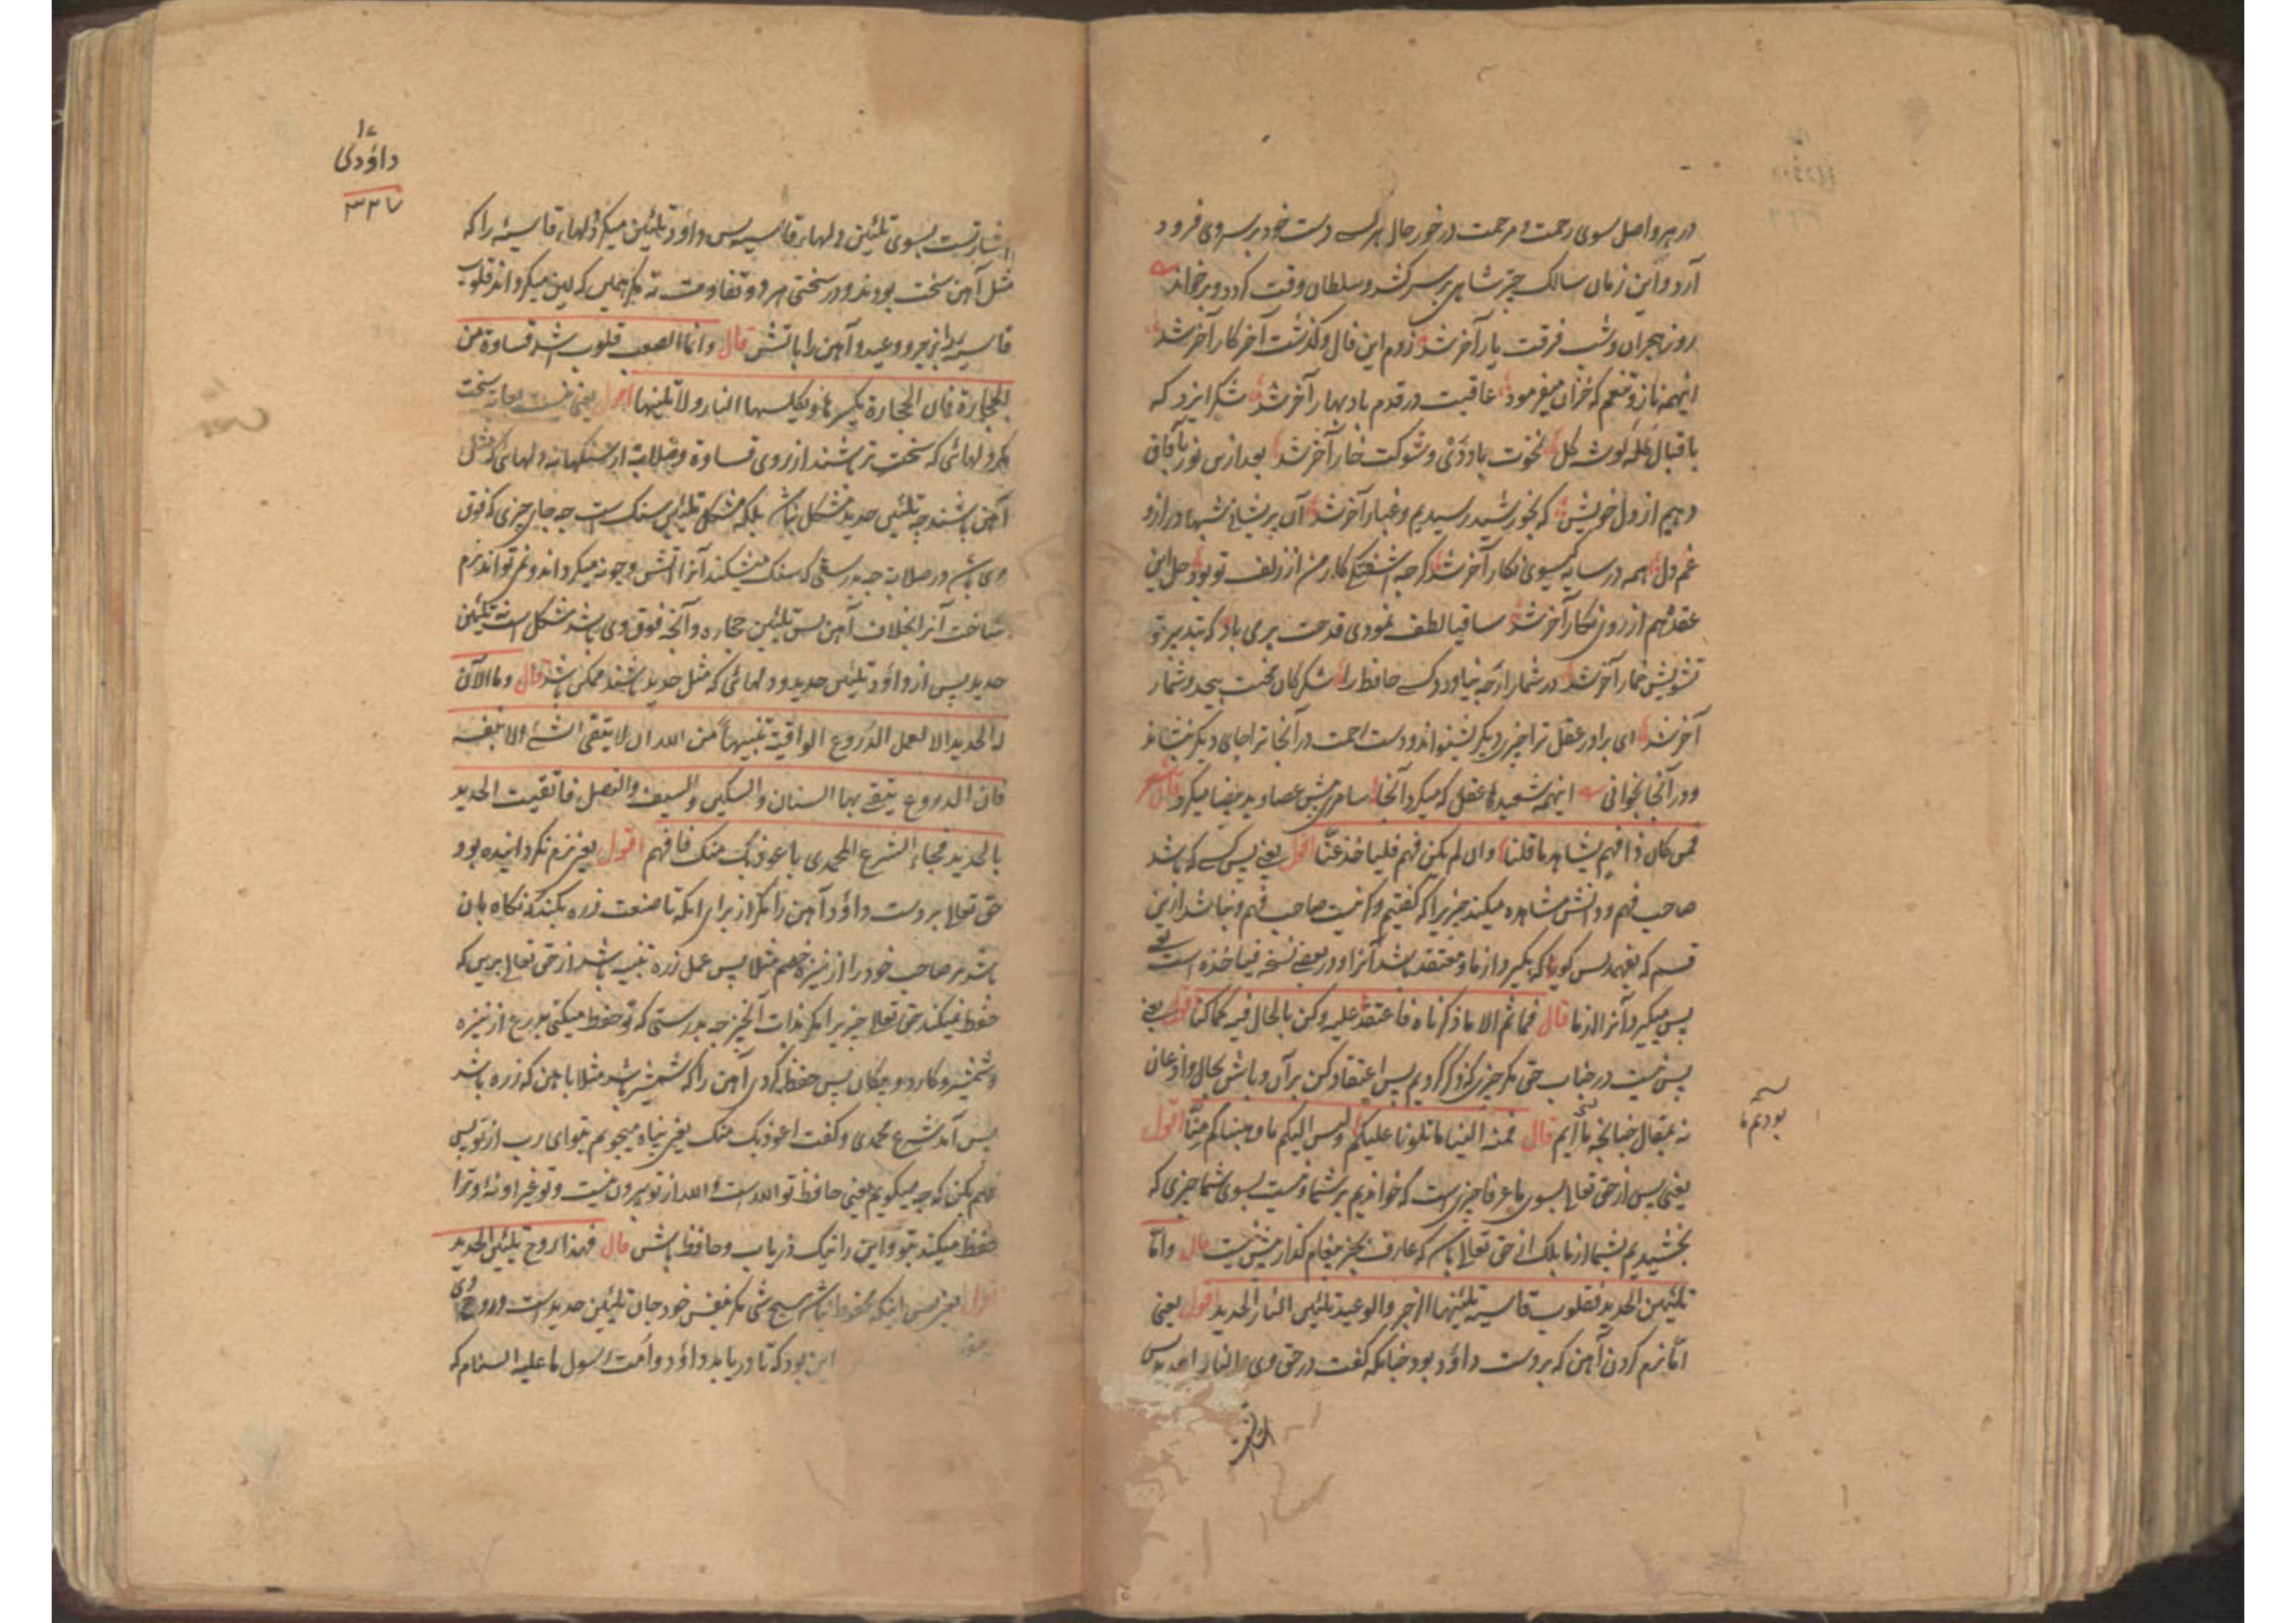 در هر واصل بسوی رحمت و مرحمت در خور حال هر کسے دست خود بر سر وی فرود
آرد و این زمان سالک چتر شاهی بر سر کشد و سلطان وقت کردد و بر خواند
روز هجران و شب فرقت یار آخر شد زدم این فال و گذشت آخر کار آخر شد
اینهمه ناز و تنعم که خزان میفرمود عاقبت در قدم باد بهار آخر شد شکر ایزد که
باقبال کله کوشه کل نخوت باد و دی و شوکت خار آخر شد بعد ازین نور بآفاق
دهیم از دل خویش که بخورشید رسیدیم و غبار آخر شد آن پریشانے شبها دراز و
غم دل همه در سایه کیسوی نکار آخر شد کرچه اشفتکے کار من از زلف تو بود حل این
عقده هم از روی نکار آخر شد ساقیا لطف نمودی قدحت پر می باد که بتدبیر تو
تشویش خمار آخر شد در شمار ارچه نیاورد کسے حافظ را شکر کان محنت بیحد و شمار
آخر شد ای برادر عقل ترا چیزی دیگر نشنواند و دست احمت در آنجا ترا جای دیگر ننشاند
و در آنجا بخوانی اینهمه شعبدها عقل که میکرد آنجا سامری پیش عصا و ید بیضا میکرد قال شعر
فمن کان ذا فهم یشاهد ما قلنا وان لم یکن فهم فلیاخذ عنّا اقول یعنے پس کسے که باشد
صاحب فهم و دانش مشاهده میکند چیزیرا که کفتیم و اکر نیست صاحب فهم و نباشد ازین
قسم که بفهمد پس کویا که بکیرد از ما و معتقد باشد آنرا و در بعضے نسخه فیاخذه است یعے
پس میکیرد آنرا از ما قال فما ثم الا ما ذکرناه فاعتمد علیه وکن بالحال فیه کما کنا اقول یعنے
پس نیست در جناب حق مکر چیزی که ذکر کردیم پس اعتقاد کن برآن و باش بحال و اذعان
نه بمقال چنانچه ما آیم قال فمنه الینا ما تلونا علیکم ولیس الیکم ما وهبناکم منّا اقول
بودیم ما
یعنی پس از حق تعالے بسوی ما عرفا چیزی است که خواندیم بر شما و نیست بسوی شما چیزی که
بخشیدیم بشما از ما بلکه از حق تعالے باشد که عارف بجز پیغام کذار بیش نیست قال وامّا
تلیین الحدید فقلوب قاسیة تلینها الزجر والوعید تلیین النار الحدید اقول یعنی
امّا نرم کردن آهن که بر دست داؤد بود چنانکه کفت در حق وی والنا له الحدید پس
اشارتست
داؤدی
۳۳۷
اشارتست بسوی تلئین دلهای قاسیه پس داؤد تلئین میکرد دلهای قاسیه را که
مثل آهن سخت بودند و در سختی هر دو تفاوت نه مکر همین که لین میکرداند قلوب
قاسیه را زجر و وعید و آهن را باتش قال وانما الصعب قلوب اشد قساوة من
الحجارة فان الحجارة تکسرها وتکلسها النار ولا تلینها اقول یعنی نیست سخت
مکر دلهائی که سخت تر باشند از روی قساوة و صلابت از سنکها نه دلهائی که مثل
آهن باشند چه تلئین حدید مشکل نباشد بلکه مشکل تلئین سنک است چه جای چیزی که فوق
وی باشد در صلابت چه بدرستی که سنک میشکند آنرا آتش و چونه میکرداند و نمی تواند نرم
ساخت آنرا بخلاف آهن پس تلئین حجاره و آنچه فوق وی باشد مشکل است نه تلئین
حدید پس از داؤد تلئین حدید و دلهائی که مثل حدید باشند ممکن باشد قال وما الآن
له الحدید الا لعمل الدروع الواقیة تنبیهاً من الله ان لا یتقی الشئ الا بنفسه
فان الدروع یتقے بها السنان والسکین والسیف والنصل فاتقیت الحدید
بالحدید فجاء الشرع المحمدی باعوذ بک منک فافهم اقول یعنے نرم نکردانیده بود
حق تعالے بر دست داؤد آهن را مکر از برای انکه تا صنعت زره بکند که نکاه بان
باشد مر صاحب خود را از نیزه خصم مثلا پس عمل زره تنبیه باشد از حق تعالے برین که
حفظ نمیکند حق تعالے چیزیرا مکر بذات آن چیز چه بدرستی که تو حفظ میکنی بدرع از نیزه
و شمشیر و کارد و پیکان پس حفظ کردی آهن را که شمشیر باشد مثلا با آهن که زره باشد
پس آمد شرع محمدی و کفت اعوذ بک منک یعنے پناه میجویم بتو ای رب از تو پس
فهم بکن که چه میکویم یعنی حافظ تو الله است و الله از تو بیرون نیست و تو غیر او نه او ترا
حفظ میکند بتو و این را نیک دریاب و حافظ باش قال فهذا روح تلئین الحدید
اقول یعنے پس اینکه محفوظ نباشد هیچ شی مکر بنفس خود جان تلئین حدید است و روح وی
این بود که تا دریابد داؤد و امت رسول ما علیه السلام که